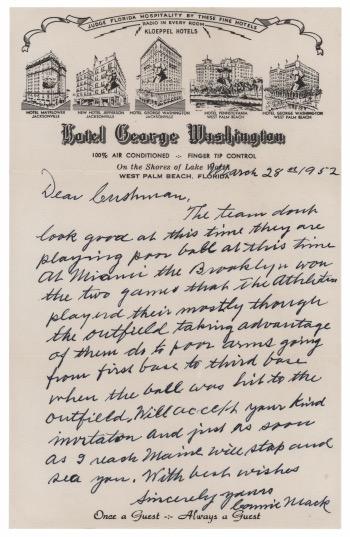 JUDGE FLORIDA HOSPITALITY BY THESE FINE HOTELS
RADIO IN EVERY ROOM
KLOEPPEL HOTELS
HOTEL MAYFLOWER
JACKSONVILLE
NEW HOTEL JEFFERSON
JACKSONVILLE
HOTEL GEORGE WASHINGTON
JACKSONVILLE
HOTEL PENNSYLVANIA
WEST PALM BEACH
HOTEL GEORGE WASHINGTON
WEST PALM BEACH
Hotel George Washington
100% AIR CONDITIONED -:- FINGER TIP CONTROL
On the Shores of Lake Worth
WEST PALM BEACH, FLORIDA
March 28th 1952
Dear Cushman,
The team dont
look good at this time they are
playing poor ball at this time
At Miami the Brooklyn won
the two games that the Athletics
played their mostly though
the outfield taking advantage
of them do to poor arms going
from first base to third base
when the ball was hit to the
outfield, Will accept your kind
invitation and just as soon
as I reach Maine will stop and
see you. With best wishes
Sincerely yours
Connie Mack
Once a Guest -:- Always a Guest